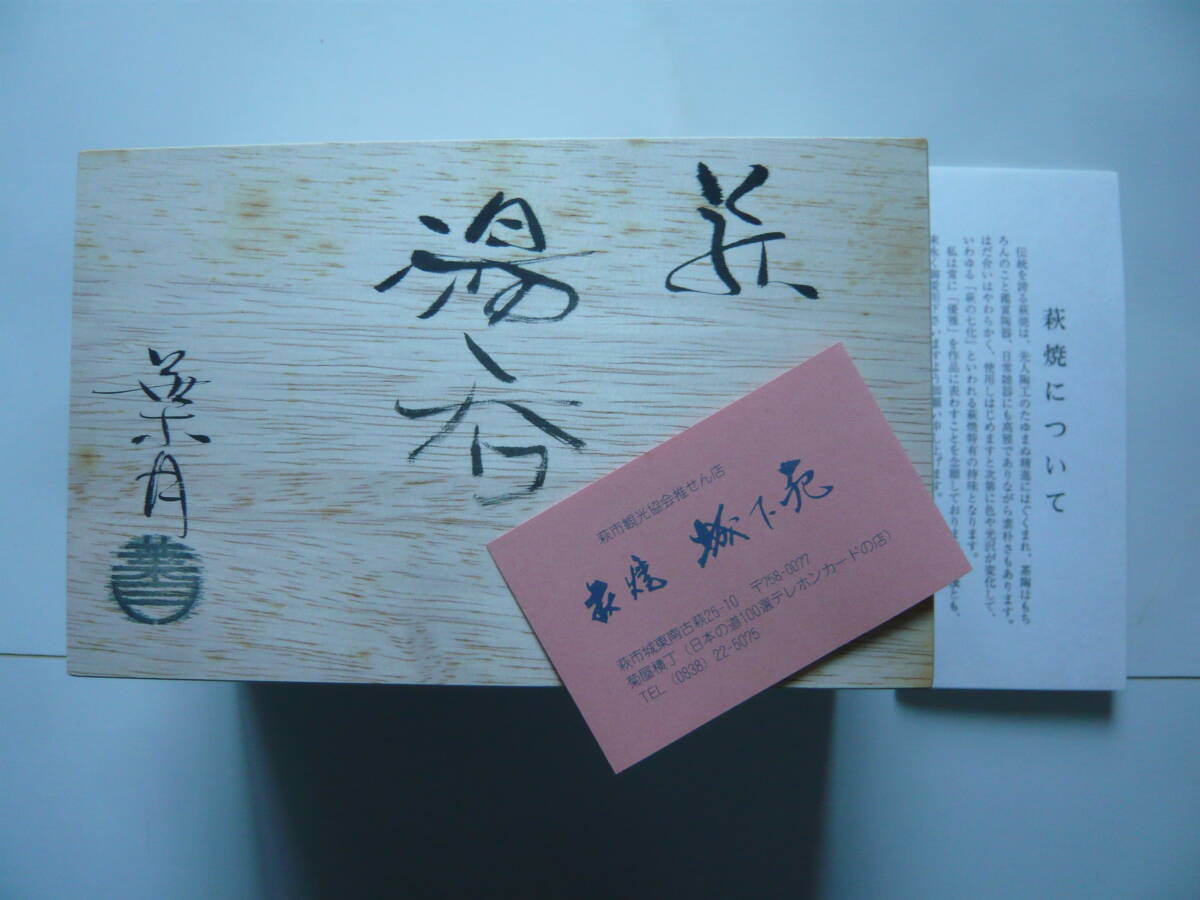 萩
湯呑
葉月
萩市観光協会推せん店
萩焼 城下苑
萩市城東南古萩25-10 〒758-0077
菊屋横丁（日本の道100選テレホンカードの店）
TEL（0838）22-5075
萩焼について
伝統を誇る萩焼は、先人陶工のたゆまぬ精進にはぐくまれ、茶陶はもち
ろんのこと鑑賞陶器、日常雑器にも高雅でありながら素朴さもあります。
はだ合いはやわらかく、使用しはじめますと次第に色や光沢が変化して、
いわゆる「萩の七化」といわれる萩焼特有の持味となります。
私は常に「優雅」を作品に表わすことを念願しておりま